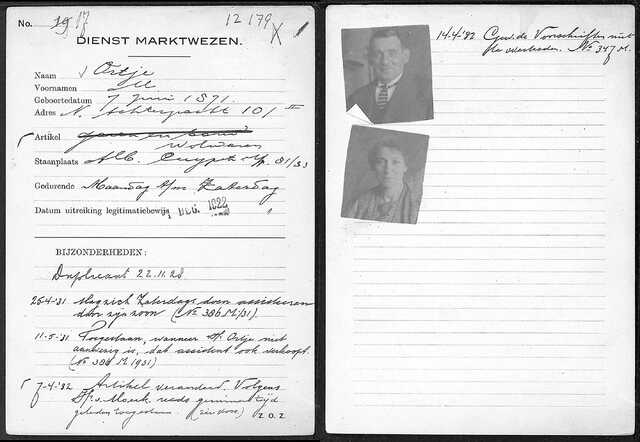 No. 1917
12179 X 1
DIENST MARKTWEZEN.
Naam Ortje
Voornamen M
Geboortedatum 7 Juni 1871.
Adres N. Achtergracht 101 II
Artikel garen en band
Wolwaren
Staanplaats Alb. Cuypst. 31/33
Gedurende Maandag t/m Zaterdag
Datum uitreiking legitimatiebewijs 1 DEC. 1922
BIJZONDERHEDEN:
Duplicaat 22.11.28
25-4-'31 Mag zich Zaterdags doen assisteeren
door zijn zoon (No 386 M/31)
11-5-'31 Toegestaan, wanneer Hr. Ortje niet
aanwezig is, dat assistent ook verkoopt.
(No 386 M 1931)
7-4-'32 Artikel veranderd. Volgens
Hr. v. Moerk reeds geruimen tijd
geleden toegestaan. (zie voor) z.o.z.
14-4-'32 Gew. de Voorschriften niet
te overtreden. No 347 M.